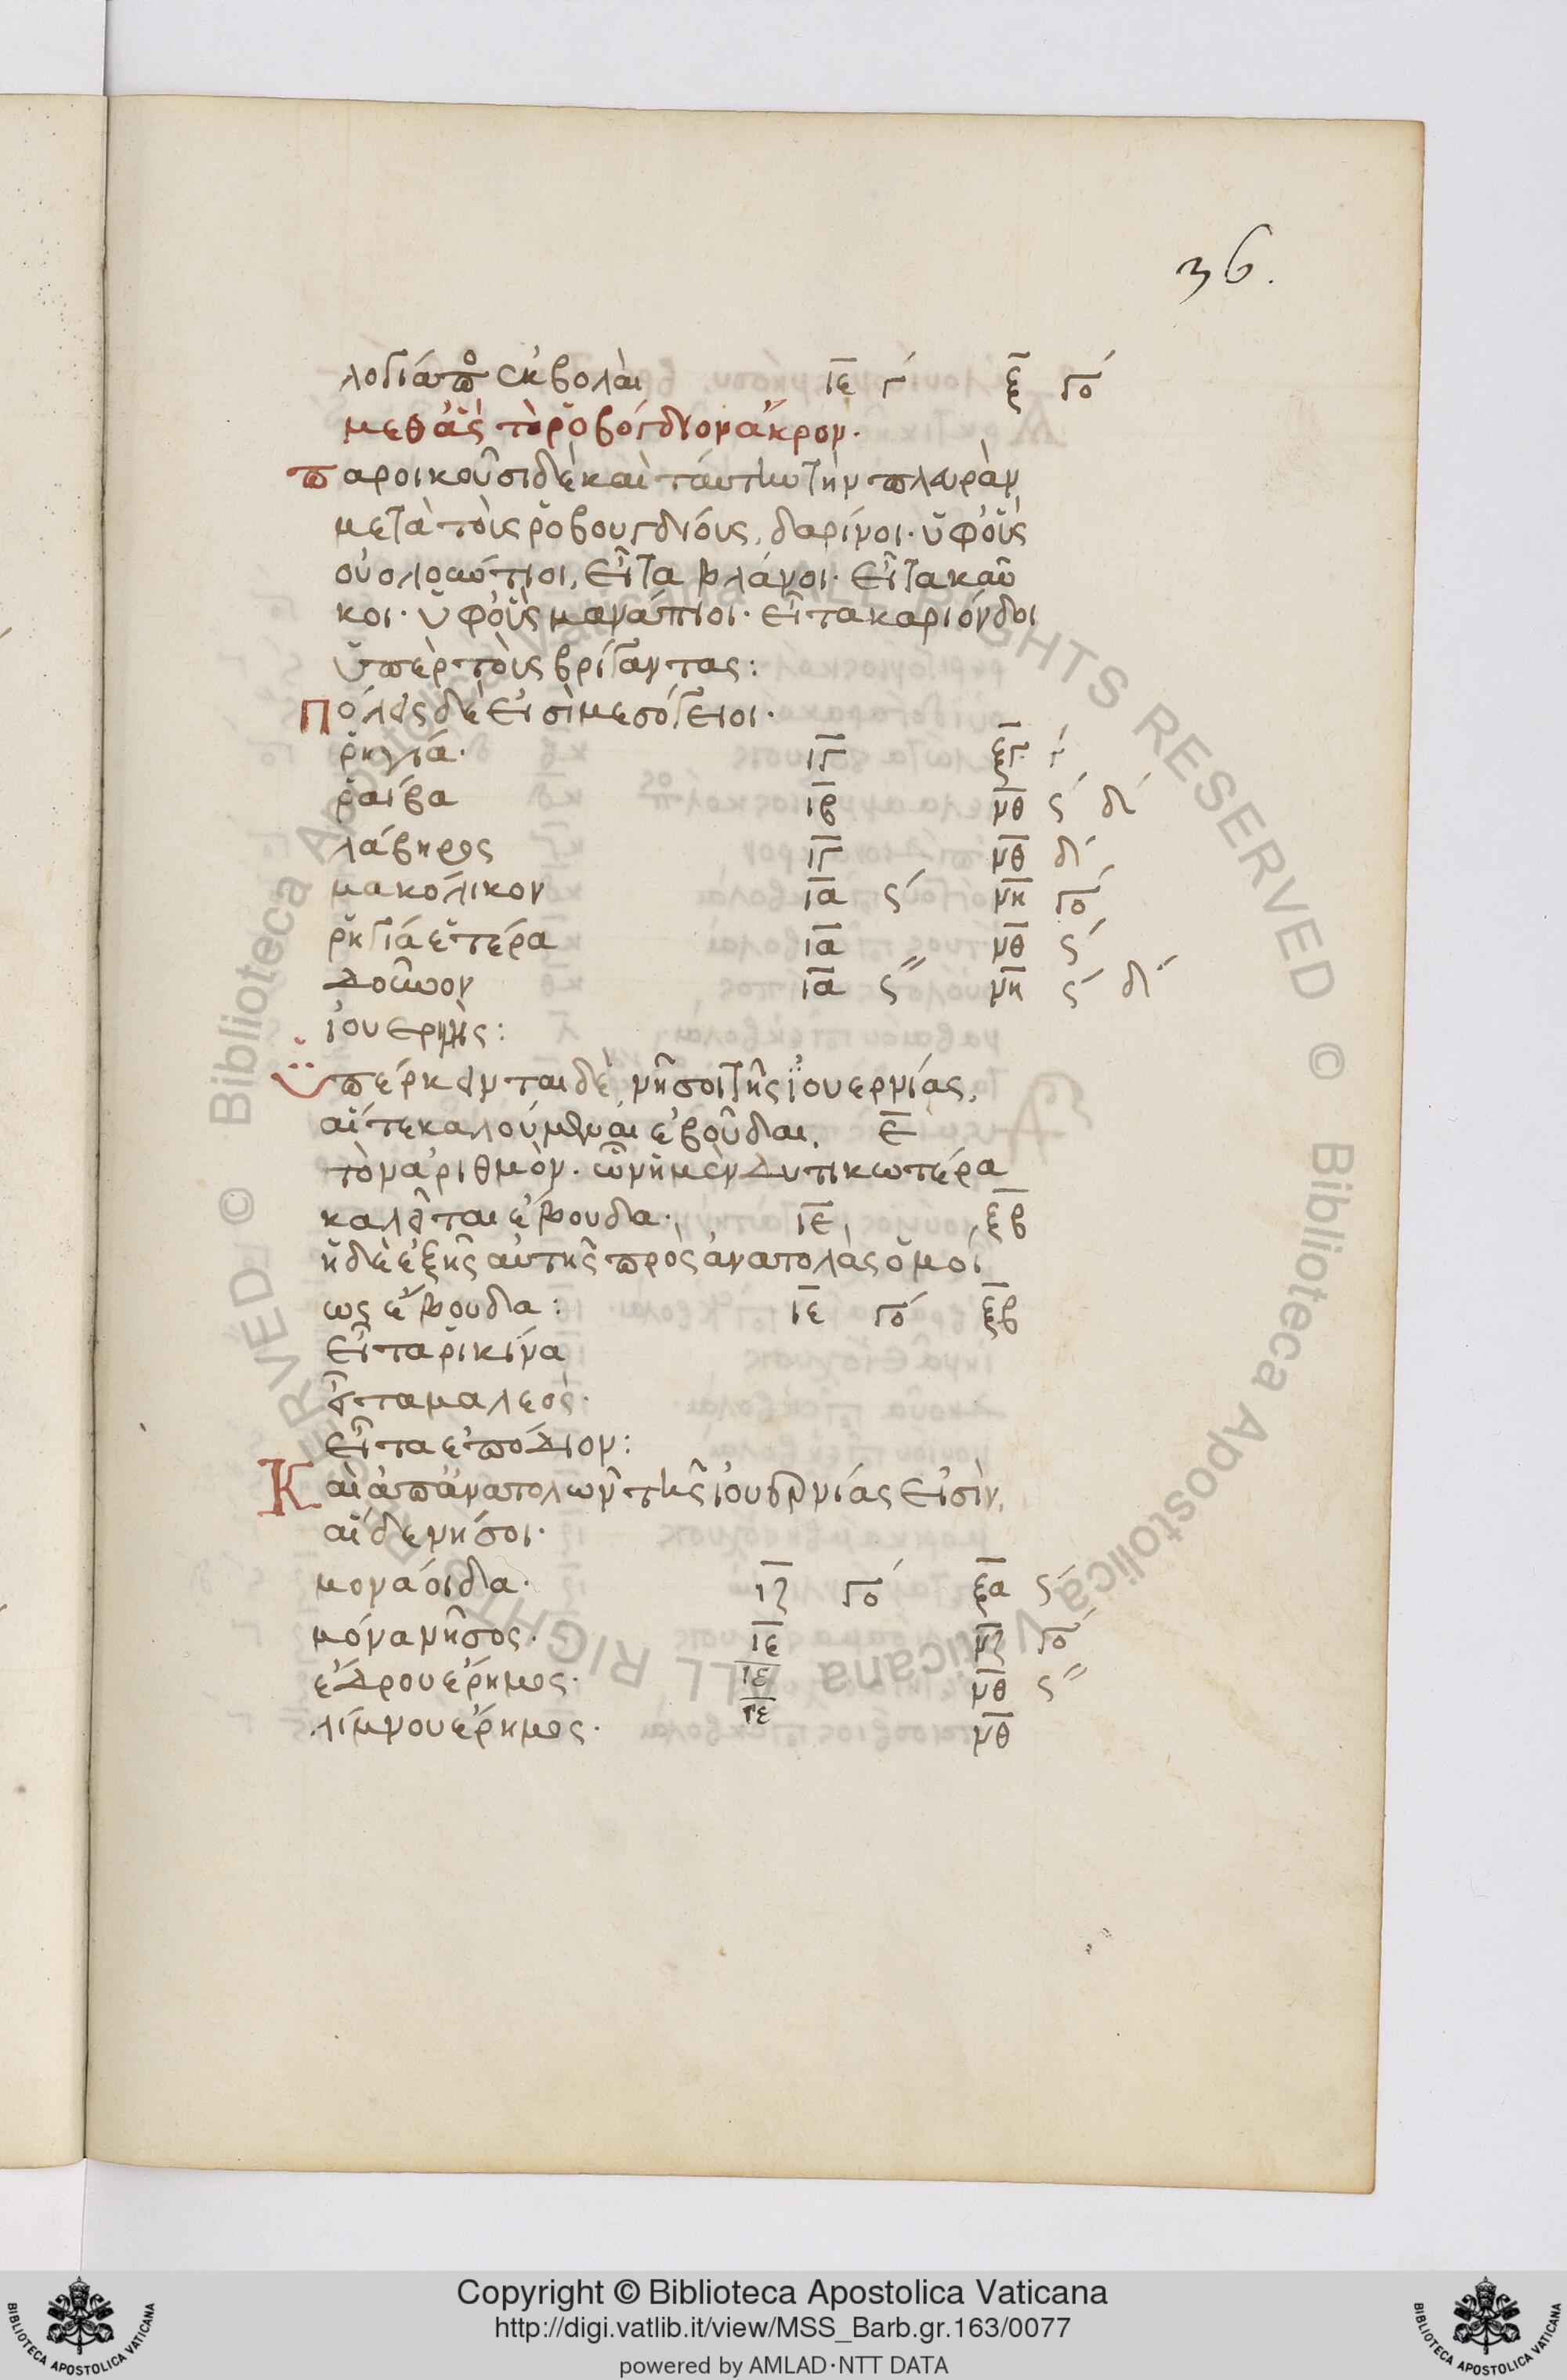 36.
λογία ποτ ἐκβολαὶ ιε γ´ ξ γο´
μεθ ἃς τὸ ῥοβόγδιον ἄκρον.
παροικοῦσι δὲ καὶ ταύτην τὴν πλευρὰν
μετὰ τοὺς ῥοβουγδίους, δαρίνοι. ὑφ οὓς
οὐολιοώντιοι, εἶτα βλάνοι. εἶτα καῦ
κοι. ὑφ οὓς μανάπιοι. εἶτα καριόνδοι
ὑπὲρ τοὺς βρίγαντας:
πόλεις δὲ εἰσὶ μεσόγειοι.
ῥηγία. ιγ ξγ γ´
ῥαίβα ιβ νθ ς´ δ´
λάβηρος ιγ νθ δ´
μακόλικον ια ς´ νη γο´
ῥηγία ἑτέρα ια νθ ς´
δοῦνον ια ς´´ νη ς´ δ´
ἰουερνὶς:
ὑπέρκεινται δὲ νῆσοι τῆς ἰουερνίας,
αἵ τε καλούμεναι ἐβοῦδαι, ε
τὸν ἀριθμὸν. ὧν ἡ μὲν δυτικωτέρα
καλεῖται ἔβουδα. ιε, ξβ
ἡ δὲ ἑξῆς αὐτῆς πρὸς ἀνατολὰς ὁμοί
ως ἔβουδα: ιε γο´ ξβ
εἶτα ῥικίνα
εἶτα μαλεὸς.
εἶτα ἐπόδιον:
Καὶ ἀπ ἀνατολῶν τῆς ἰουερνίας εἰσὶν,
αἵδε νήσοι.
μονάοιδα. ιζ γο´ ξα ς´
μόνα νῆσος. ιε νζ γο´
ἔδρου ἔρημος. ιε νθ ς´´
λίμνου ἔρημος. ιε νθ
Copyright © Biblioteca Apostolica Vaticana
http://digi.vatlib.it/view/MSS_Barb.gr.163/0077
powered by AMLAD·NTT DATA